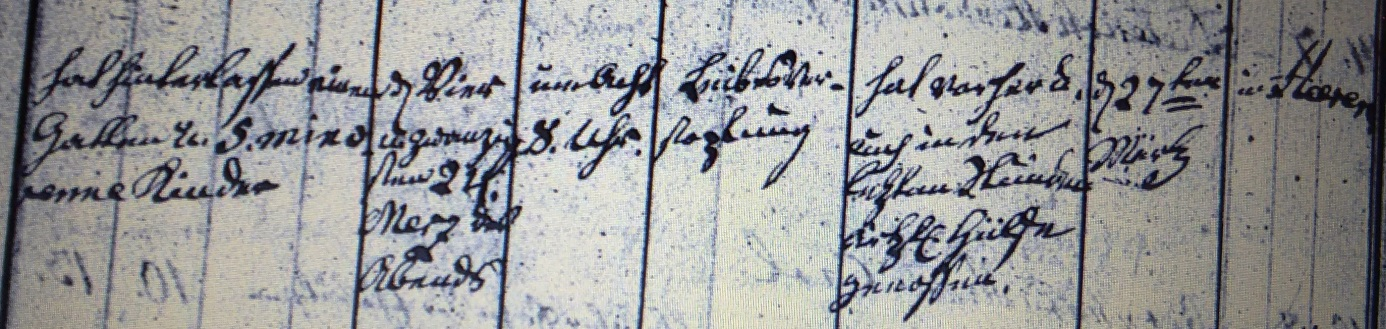 hat hinterlassen einen
Gatten u. 5. mino
renne Kinder
d Vier
u zwanzig
sten 24.
Merz des
Abends
um Acht
8. Uhr.
Leibesver-
stopfung
hat vorher u.
auch in den
letzten Stunden
ärztl. Hülfe
genossen.
d 27ten
Märtz
in Heeren